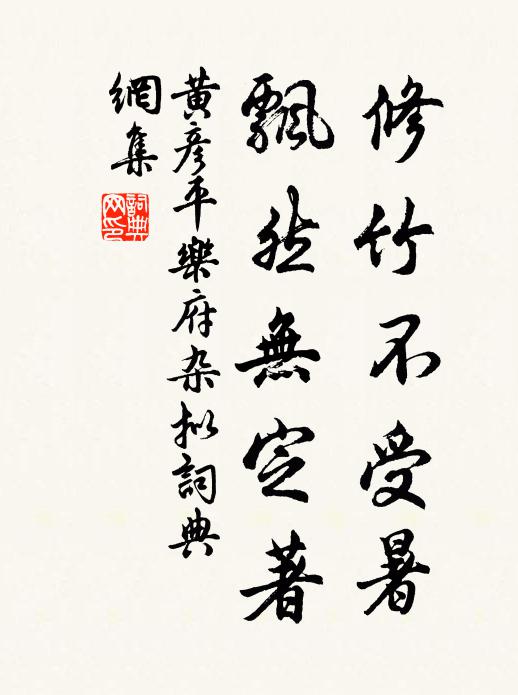 修竹不受暑
飄然無定著
黃彥平樂府杂拟詞典
網集
詞典
网印